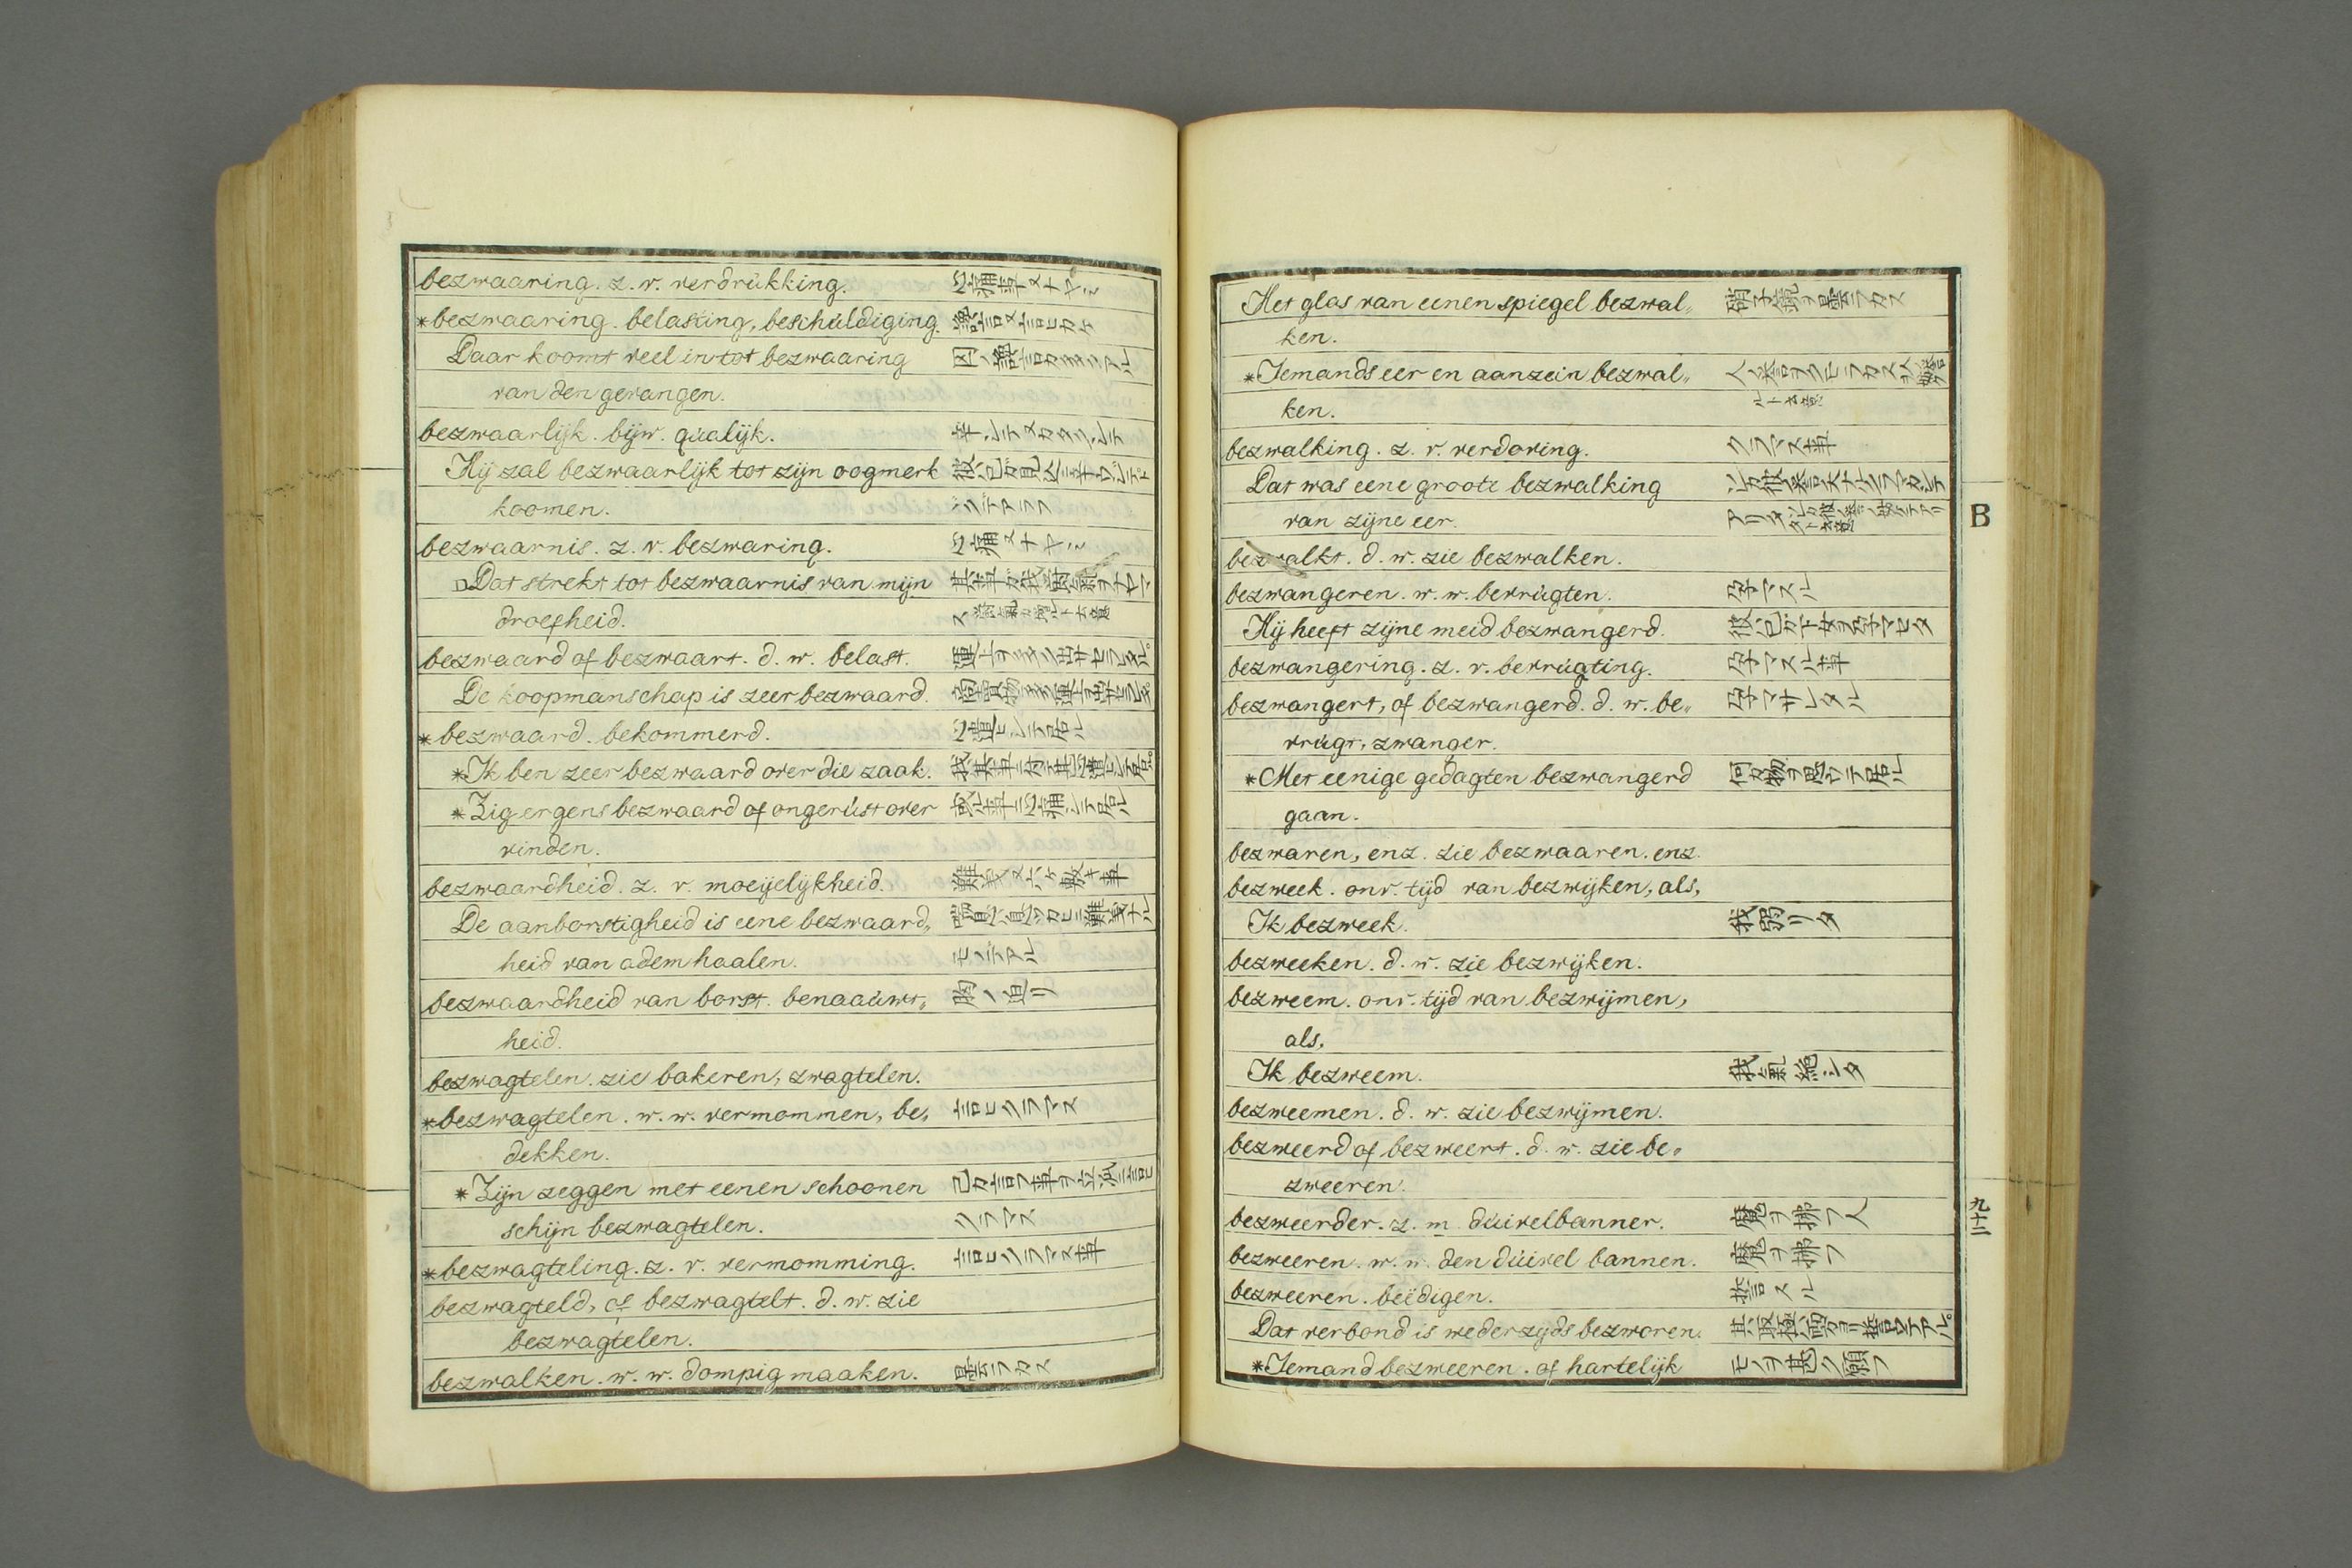 bezwaaring. z. v. verdrùkking. 心痛事又ナヤミ
*bezwaaring. belasting, beschùldiging. 讒言又言ヒカケ
Daar koomt veel in tot bezwaaring 囚ノ讒言カ多クアル
van den gevangen.
bezwaarlijk. bijw. qùalijk. 辛シテ又カタクシテ
Hij zal bezwaarlijk tot zijn oogmerk
koomen.
bezwaarnis. z. v. bezwaring. 心痛又ナヤミ
Dat strekt tot bezwaarnis van mijn
droefheid.
bezwaard of bezwaart. d. w. belast.
De koopmanschap is zeer bezwaard.
*bezwaard. bekommerd. 心遣ヒシテ居ル
*Ik ben zeer bezwaard over die zaak.
*Zig ergens bezwaard of ongerùst over 或ル事ニ心痛シテ居ル
vinden.
bezwaardheid. z. v. moeijelijkheid. 難義又六ケ敷キ事
De aanborstigheid is eene bezwaard„ 喘息ハ息ツカヒニ難義ナル
heid van adem haalen. モノデアル
bezwaardheid van borst. benaaùwt„ 胸ノ迫リ
heid.
bezwagtelen. zie bakeren, zwagtelen.
*bezwagtelen. w. w. vermommen, be„ 言ヒクラマス
dekken.
*Zijn zeggen met eenen schoonen
schijn bezwagtelen. クラマス
*bezwagteling. z. v. vermomming. 言ヒクラマス事
bezwagteld, of bezwagtelt. d. w. zie
bezwagtelen.
bezwalken. w. w. dompig maaken. 曇ラカス
Het glas van eenen spiegel bezwal„ 硝子鏡ヲ曇ラカス
ken.
*Iemands eer en aanzein bezwal„
ken.
bezwalking. z. v. verdoving. クラマス事
Dat was eene groote bezwalking
van zijne eer.
B
bezwalkt. d. w. zie bezwalken.
bezwangeren. w. w. bevrùgten. 孕マスル
Hij heeft zijne meid bezwangerd. 彼ハ己カ下女ヲ孕マセタ
bezwangering. z. v. bevrùgting. 孕マスル事
bezwangert, of bezwangerd. d. w. be„ 孕マサレタル
vrùgt, zwanger.
*Met eenige gedagten bezwangerd 何カ物ヲ思フテ居ル
gaan.
bezwaren, enz. zie bezwaaren. enz.
bezweek. onv. tijd van bezwijken, als,
Ik bezweek. 我弱リタ
bezweeken. d. w. zie bezwijken.
bezweem. onv. tijd van bezwijmen,
als,
Ik bezweem. 我氣絶シタ
bezweemen. d. w. zie bezwijmen.
bezweerd of bezweert. d. w. zie be„
zweeren.
bezweerder. z. m. dùivelbanner. 魔ヲ拂フ人
九十二
bezweeren. w. w. den dùivel bannen. 魔ヲ拂フ
bezweeren. beëdigen. 誓スル
Dat verbond is wederzijds bezworen.
*Iemand bezweeren. of hartelijk モノヲ甚ク願フ